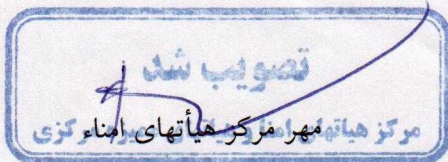 تصویب شد
مهر مرکز هیأتهای امناء
مرکز هیأتهای امناء
مرکزی